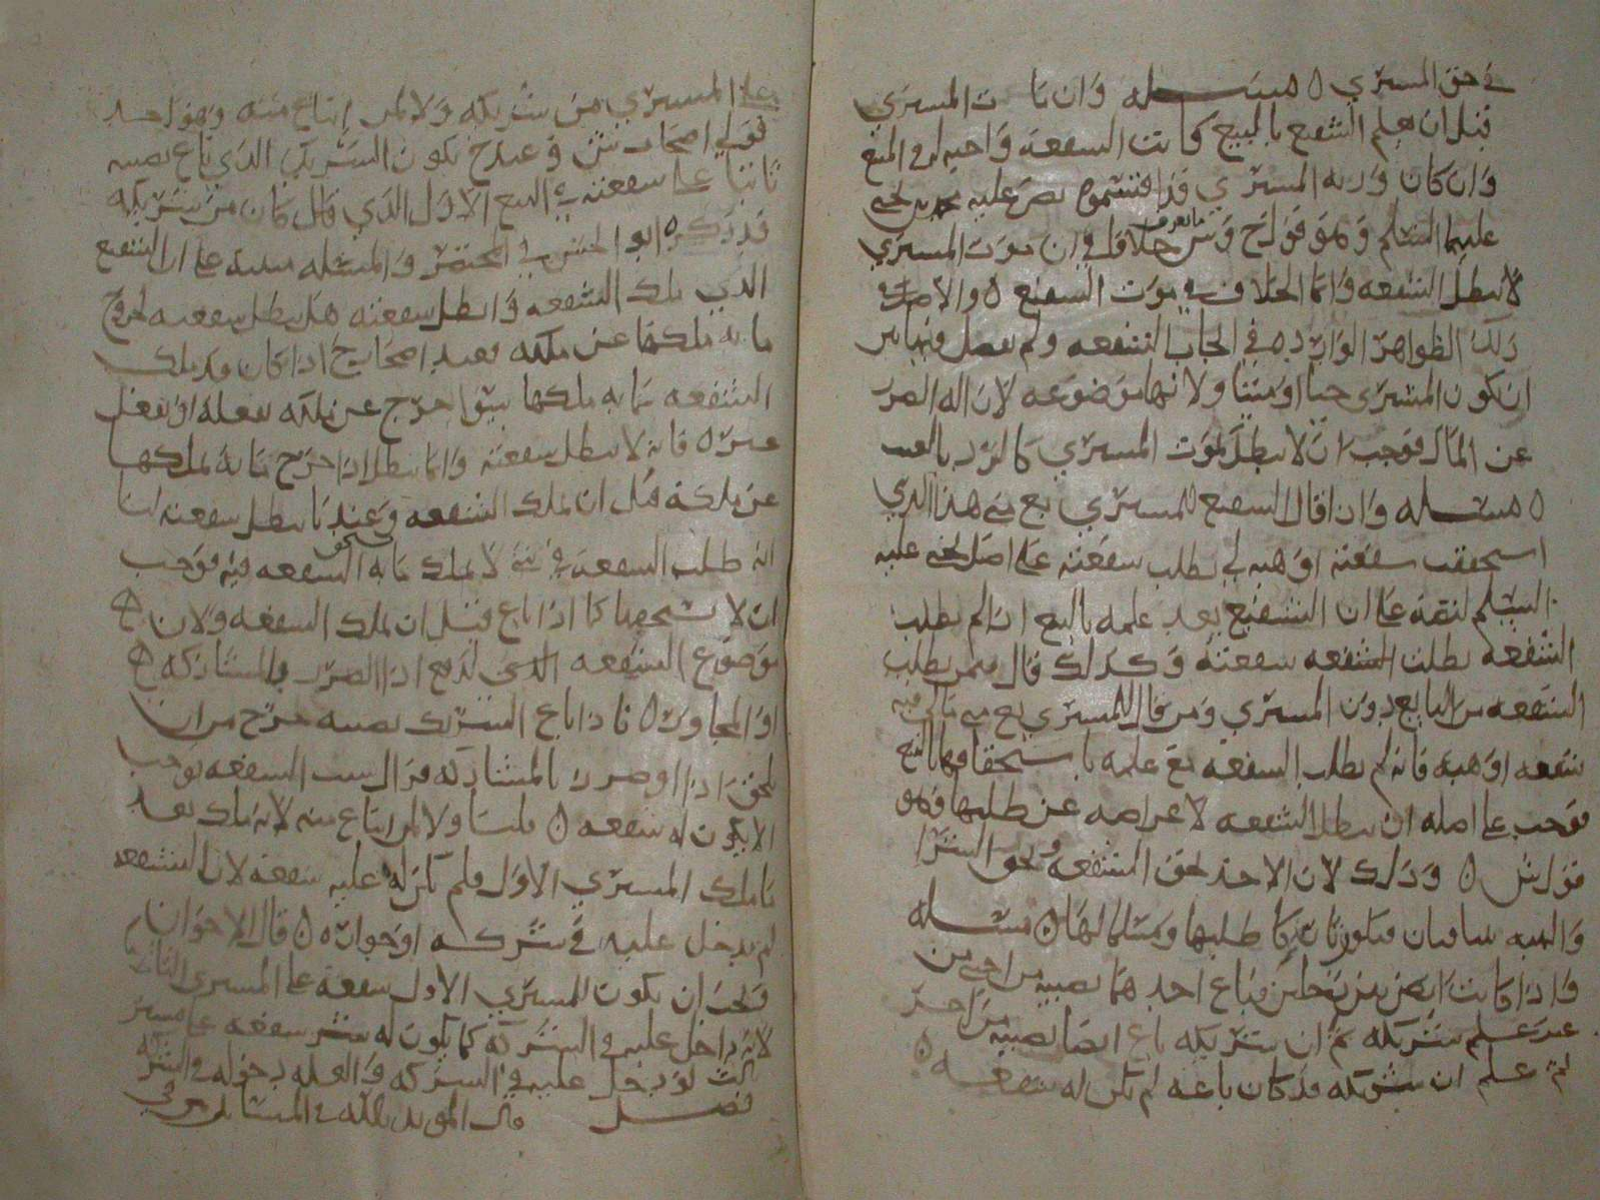 في حق المشتري ه مسئله وان مات المشتري
قبل ان يعلم الشفيع بالمبيع كانت الشفعه واجبه له في المبيع
وان كان ورثه المشتري قد اقتسموه نص عليه محمد بن يحيى
عليهما السلم وهو قول ح وش خلاف في ان موت المشتري
لا يبطل الشفعه وانما الخلاف في موت الشفيع ه والاصل في
ذلك الظواهر الوارده في ايجاب الشفعه ولم يفصل فيها بين
ان يكون المشتري حيا او ميتا ولانها موضوعه لازاله الضرر
عن المال فوجب ان لا يبطل بموت المشتري كالرد بالعيب
ه مسئله واذا قال الشفيع للمشتري بع مني هذا الذي
استحققت شفعته او هبه لي بطلت شفعته على اصل يحيى عليه
السلم لنصه على ان الشفيع بعد علمه بالبيع اذا لم يطلب
الشفعه بطلت الشفعه شفعته وكذلك قال فيمن يطلب
الشفعه من البايع دون المشتري ومن قال للمشتري بع مني مالي فيه
شفعه او هبه فانه لم يطلب الشفعه مع علمه باستحقاقها بالبيع
فوجب على اصله ان تبطل الشفعه لاعراضه عن طلبها وهو
قول ش ه وذلك لان الاخذ بحق الشفعه وبحق الشرا
والهبه يتنافيان فيكون تاركا طلبها ومسلما لها ه مسئله
واذا كانت ارض بين رجلين فباع احدهما نصيبه من اجنبي من
غير علم شريكه ثم ان شريكه باع ايضا نصيبه من اخر
ثم علم ان شريكه قد كان باعه لم تكن له شفعه ه
على المشتري من شريكه ولا لمن ابتاع منه وهو احد
قولي اصحاب ش وعند ح يكون الشريك الذي باع نصيبه
ثابتا على شفعته في البيع الاول الذي قال كان من شريكه
قد ذكره ابو الحسن في المختصر والمسئله مبنيه على ان الشفيع
الذي ملك الشفعه وابطل شفعته هل تبطل شفعته لخروج
ما به ملكها عن ملكه فعند اصحاب ح اذا كان قد ملك
الشفعه بما به ملكها سوا خرج عن ملكه بفعله او بفعل
غيره ه فانه لا تبطل شفعته وانما تبطل اذا خرج ما به يملكها
عن ملكه قبل ان يملك الشفعه وعندنا تبطل شفعته لنا
انه طلب الشفعه في شي لا يملك ما به يستحق الشفعه فيه فوجب
ان لا يستحقها كما اذا باع قبل ان يملك الشفعه ولان
موضوع الشفعه الذي لدفع اذا الضرر بالمشاركه
او المجاوره ه فاذا باع الشريك نصيبه خرج من ان
يلحقه اذا او ضرر بالمشاركه فزال سبب الشفعه فوجب
الا يكون له شفعه ه قلنا ولا لمن ابتاع منه لانه ملك بعد
ما ملك المشتري الاول فلم تكن له عليه شفعه لان الشفعه
لم يدخل عليه في شركه او جواره ه قال الاخوان
ويجب ان يكون للمشتري الاول شفعه على المشتري الثاني
لانه داخل عليه في الشركه كما يكون له شفعه على مشتر
ثالث لو دخل عليه في الشركه والعله دخوله في الشركه
فصل قال المويد بالله في